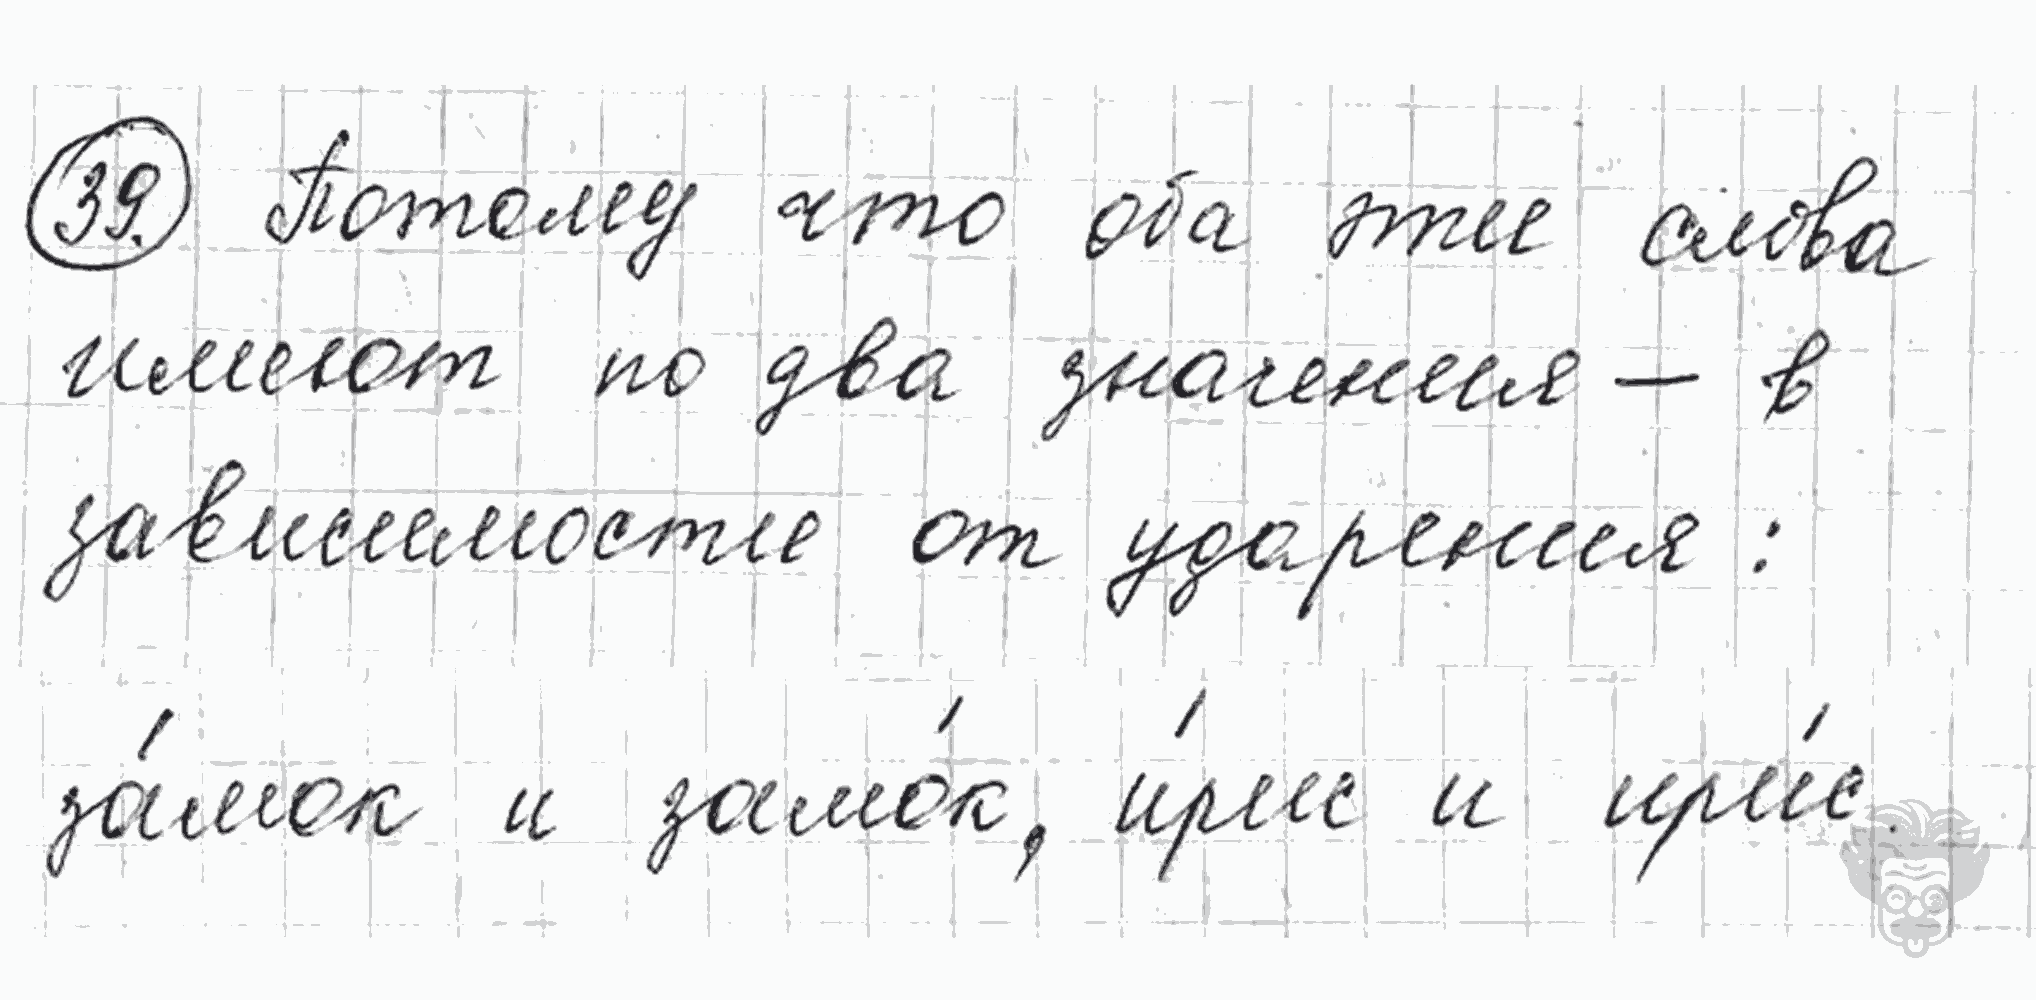 39. Потому что оба эти слова
имеют по два значения — в
зависимости от ударения:
за́мок и замо́к, и́рис и ири́с.